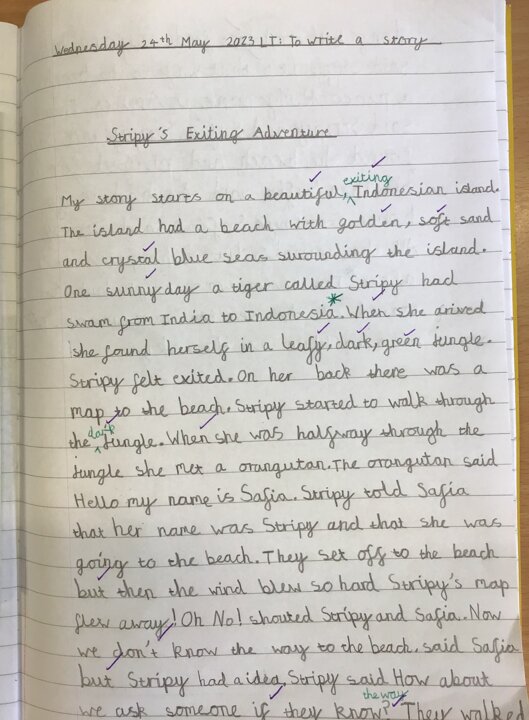 Wednesday 24th May 2023 LT: To write a story
Stripy's Exiting Adventure
exiting
My story starts on a beautiful, Indonesian island.
The island had a beach with golden, soft sand
and crystal blue seas surounding the island.
One sunny day a tiger called Stripy had
swam from India to Indonesia*. When she arived
she found herself in a leafy, dark, green Jungle.
Stripy felt exited. On her back there was a
map to the beach. Stripy started to walk through
dark
the Jungle. When she was halfway through the
Jungle she met a orangutan. The orangutan said
Hello my name is Safia. Stripy told Safia
that her name was Stripy and that she was
going to the beach. They set off to the beach
but then the wind blew so hard Stripy's map
flew away! Oh No! shouted Stripy and Safia. Now
we don't know the way to the beach. said Safia
but Stripy had a idea, Stripy said How about
the way
we ask someone if they know? They walked